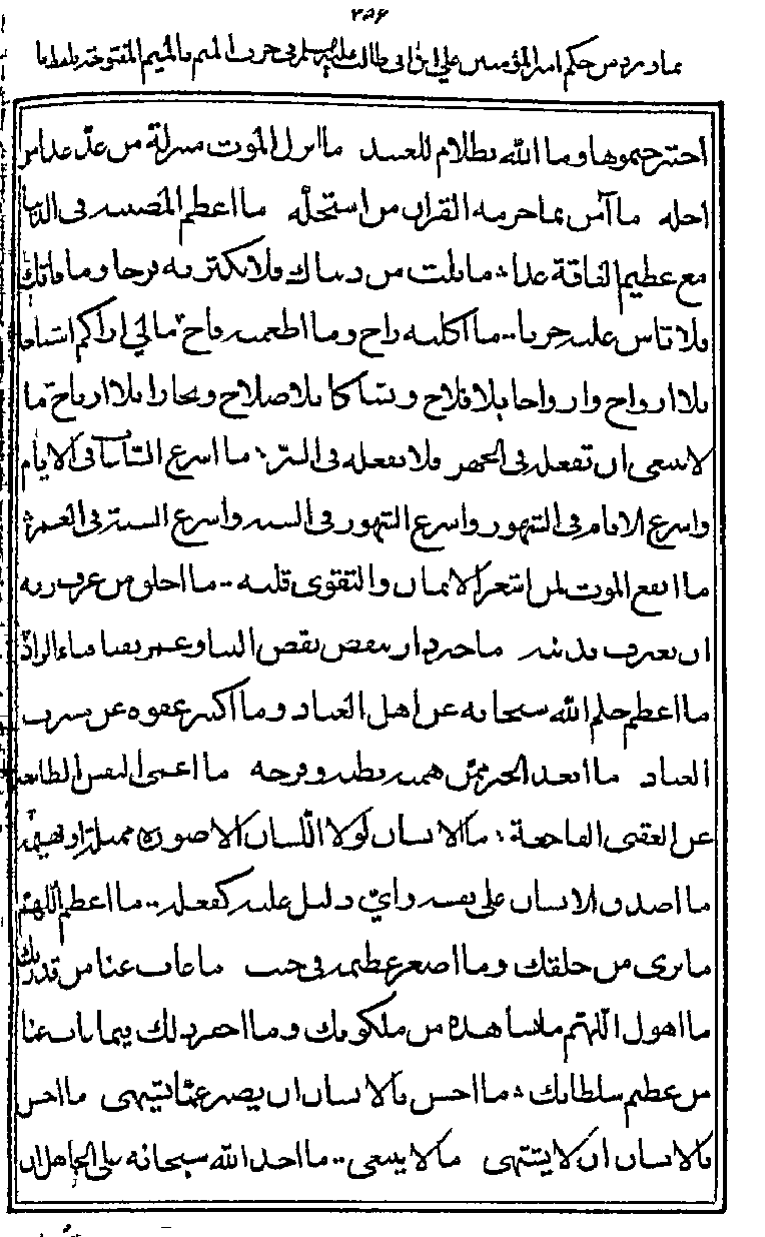 ٢٥۶
مما ورد من حكم امير المؤمنين علي ابن ابى طالب عليه السلم فى حرف الميم بالميم المفتوحة بلفظ ما
اجترحتموها وما الله بظلام للعبيد ما انزل الموت منزلة من عدّ غدا من
اجله ما آمن بما حرمه القران من استحلّه ما اعظم المصيبة فى الدنيا
مع عظيم الفاقة غدا ما نلت من دنياك فلا تكثر به فرحا وما فاتك
فلا تاس عليه حزنا ما اكلته راح وما اطعمته فاح مالي اراكم اشباحا
بلا ارواح وارواحا بلا فلاح ونساكا بلا صلاح وتجارا بلا ارباح ما
لا ينبغى ان تفعله فى الجهر فلا تفعله فى السرّ ما اسرع الساعات فى الايام
واسرع الايام فى الشهور واسرع الشهور فى السنة واسرع السنة فى العمر
ما انفع الموت لمن اشعر الايمان والتقوى قلبه ما اخلق من عرف ربه
ان يعترف بذنبه ما خير دار تنقض نقض البنا وعمر يفنا فناء الزاد
ما اعظم حلم الله سبحانه عن اهل العناد وما اكثر عفوه عن مسرف
العباد ما ابعد الخير ممّن همته بطنه وفرجه ما اعمى النفس الطامعة
عن العقبى الفاجعة ما الانسان لولا اللّسان الا صورة ممثلة او بهيمة
ما اصدق الانسان على نفسه وايّ دليل عليه كفعله ما اعظم اللهمّ
ما نرى من خلقك وما اصغر عظيمه فى جنب ما غاب عنا من قدرتك
ما اهول اللهمّ ما نشاهده من ملكوتك وما احقر ذلك فيما غاب عنا
من عظيم سلطانك ما احسن بالانسان ان يصبر عمّا يشتهى ما احسن
بالانسان ان لا يشتهى ما لا ينبغى ما اخذ الله سبحانه على الجاهل ان